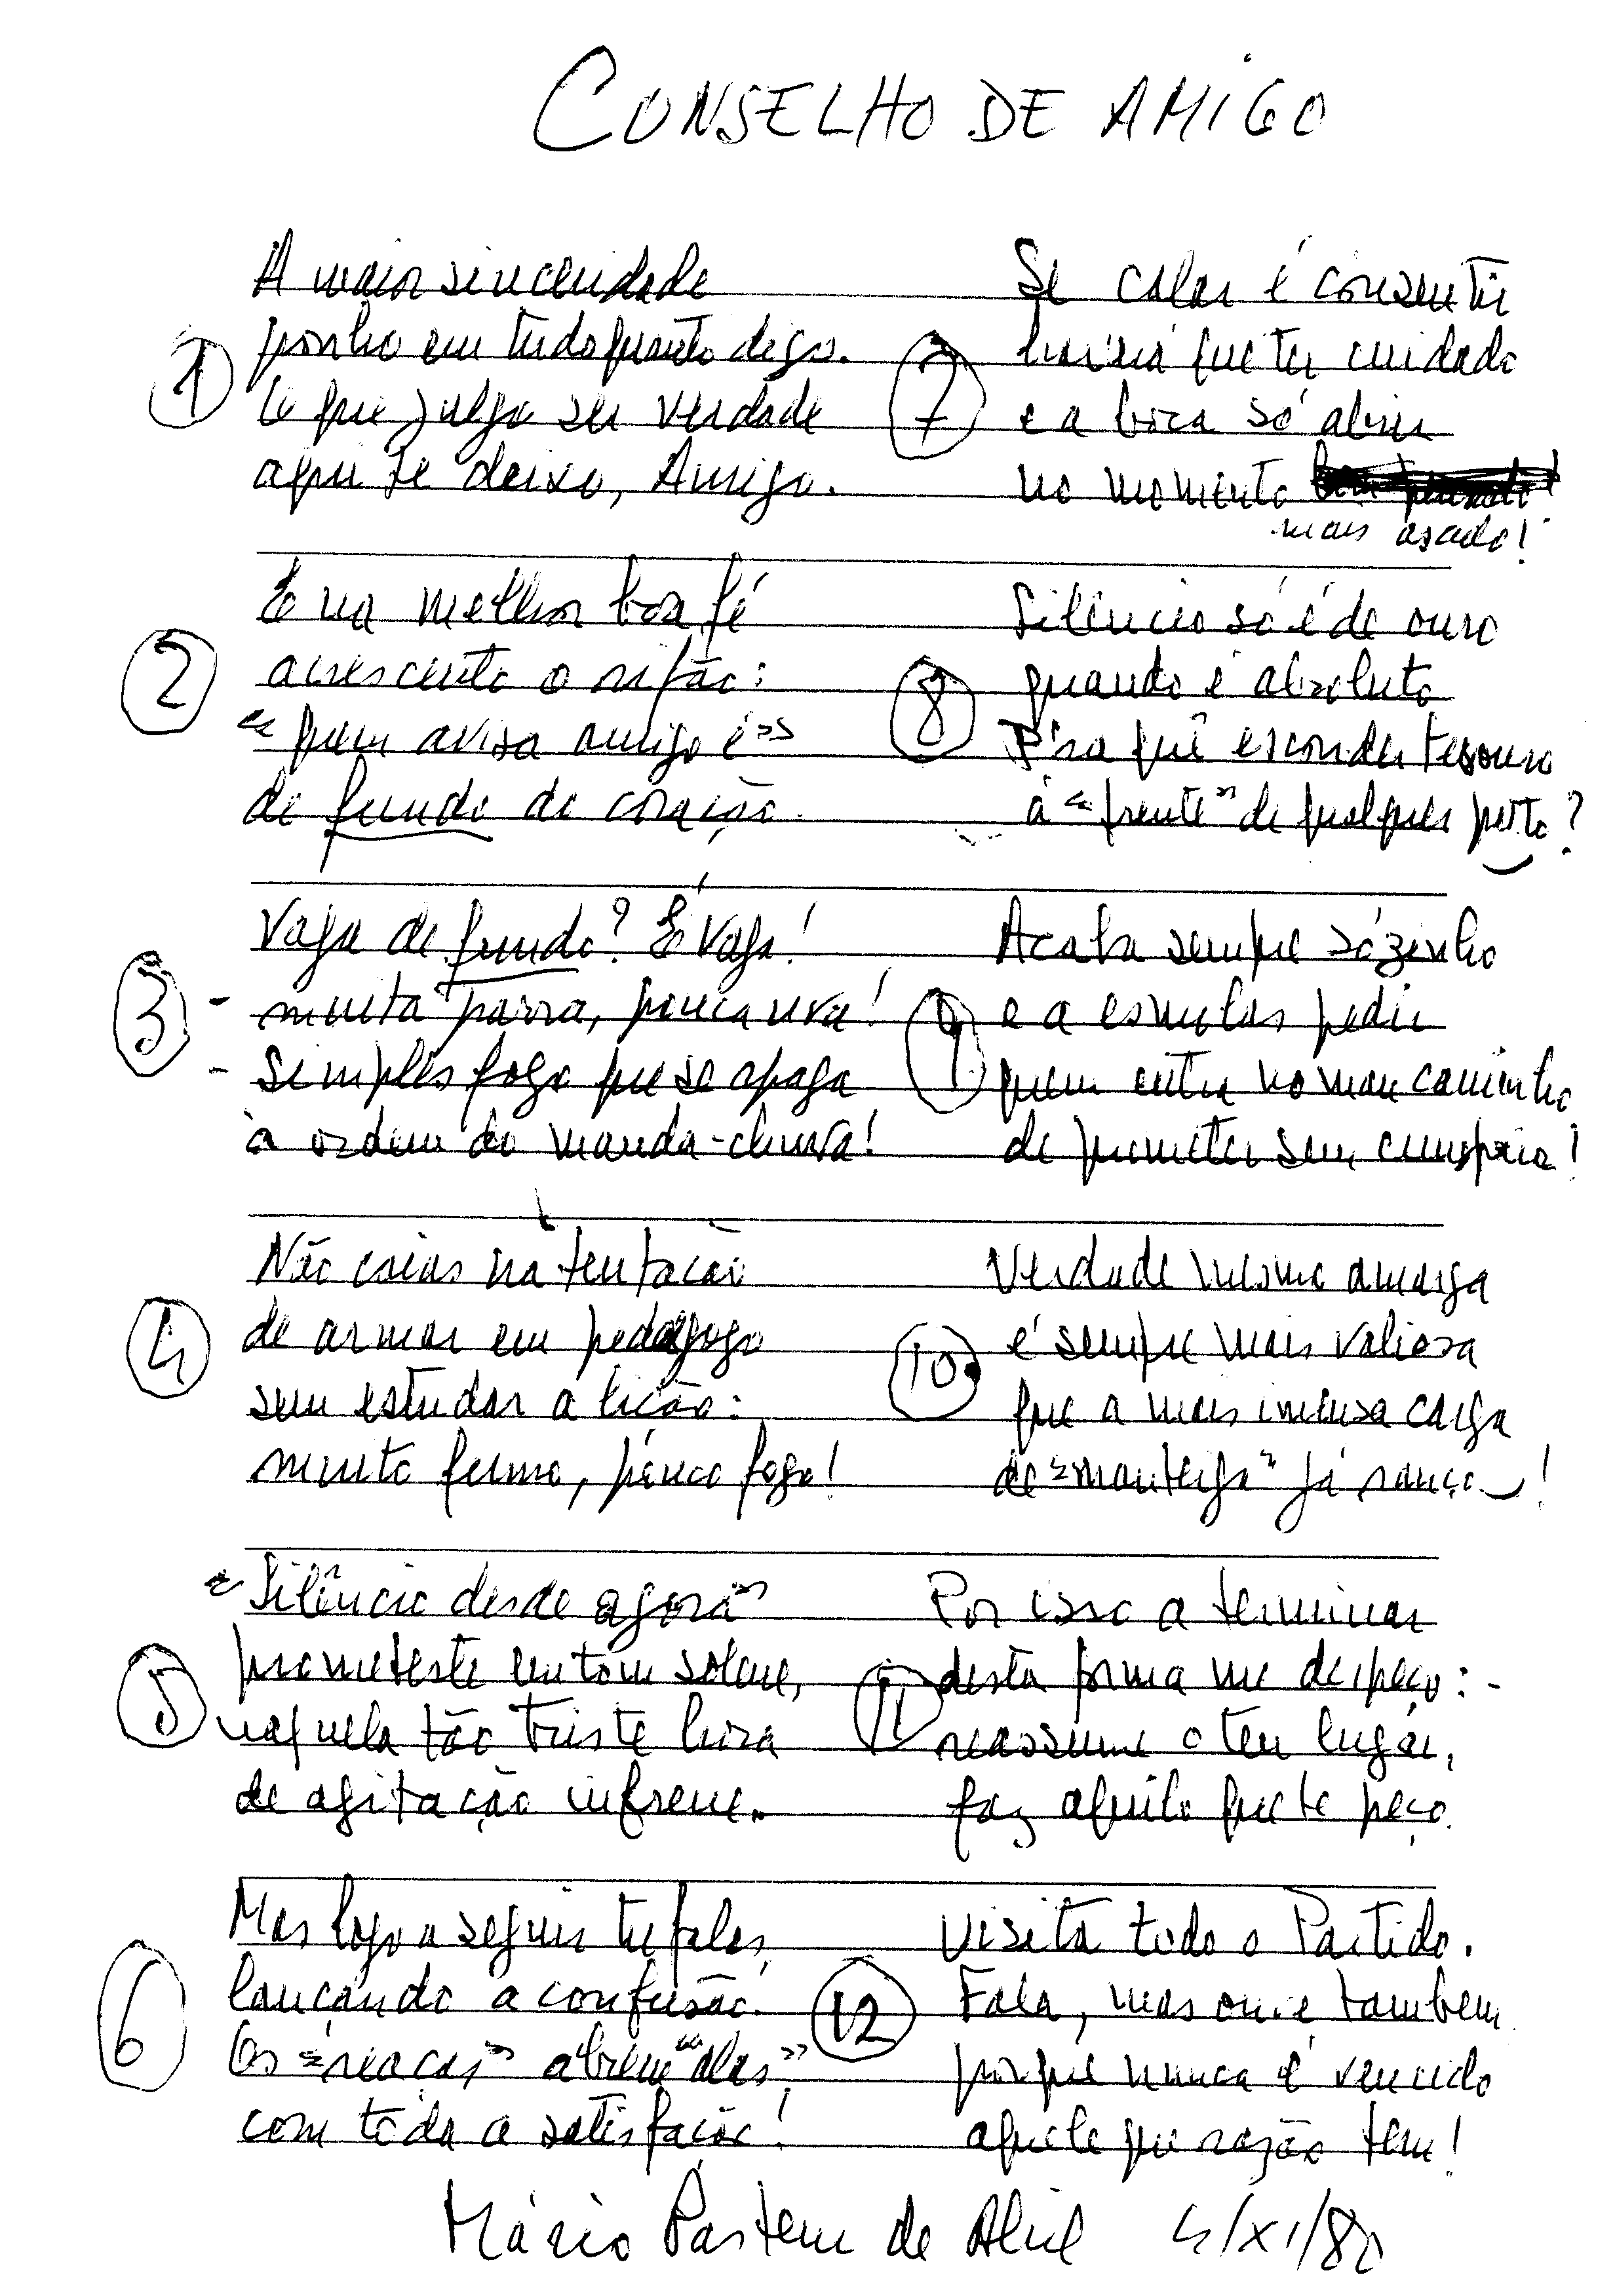 CONSELHO DE AMIGO
1
A maior sinceridade
ponho em tudo quanto digo.
O que julgo ser verdade
aqui te deixo, Amigo.
2
E na melhor boa fé
acrescento o rifão:
«quem avisa amigo é»
do fundo do coração.
3
Vaga de fundo? É vaga!
- muita parra, pouca uva!
- simples fogo que se apaga
à ordem do manda-chuva!
4
Não caias na tentação
de armar em pedagogo
sem estudar a lição:
muito fumo, pouco fogo!
5
«Silêncio desde agora»
prometeste em tom solene,
naquela tão triste hora
de agitação infrene.
6
Mas logo a seguir tu falas,
lançando a confusão.
Os «reaças» abrem «alas»
com toda a satisfação!
7
Se calar é consentir
haverá que ter cuidado
e a boca só abrir
no momento
mais azado!
8
Silêncio só é de ouro
quando é absoluto
P'ra quê esconder tesouro
à «frente» de qualquer puto?
9
Acaba sempre sózinho
e a esmolas pedir
quem entra no mau caminho
de prometer sem cumprir!
10
Verdade mesmo amarga
é sempre mais valiosa
que a mais imensa carga
de «manteiga» já rançosa!
11
Por isso a terminar
desta forma me despeço: -
reassume o teu lugar,
faz aquilo que te peço.
12
Visita todo o Partido.
Fala, mas ouve também
porque nunca é vencido
aquele que razão tem!
Mário Pastem de Abril 4/XI/80